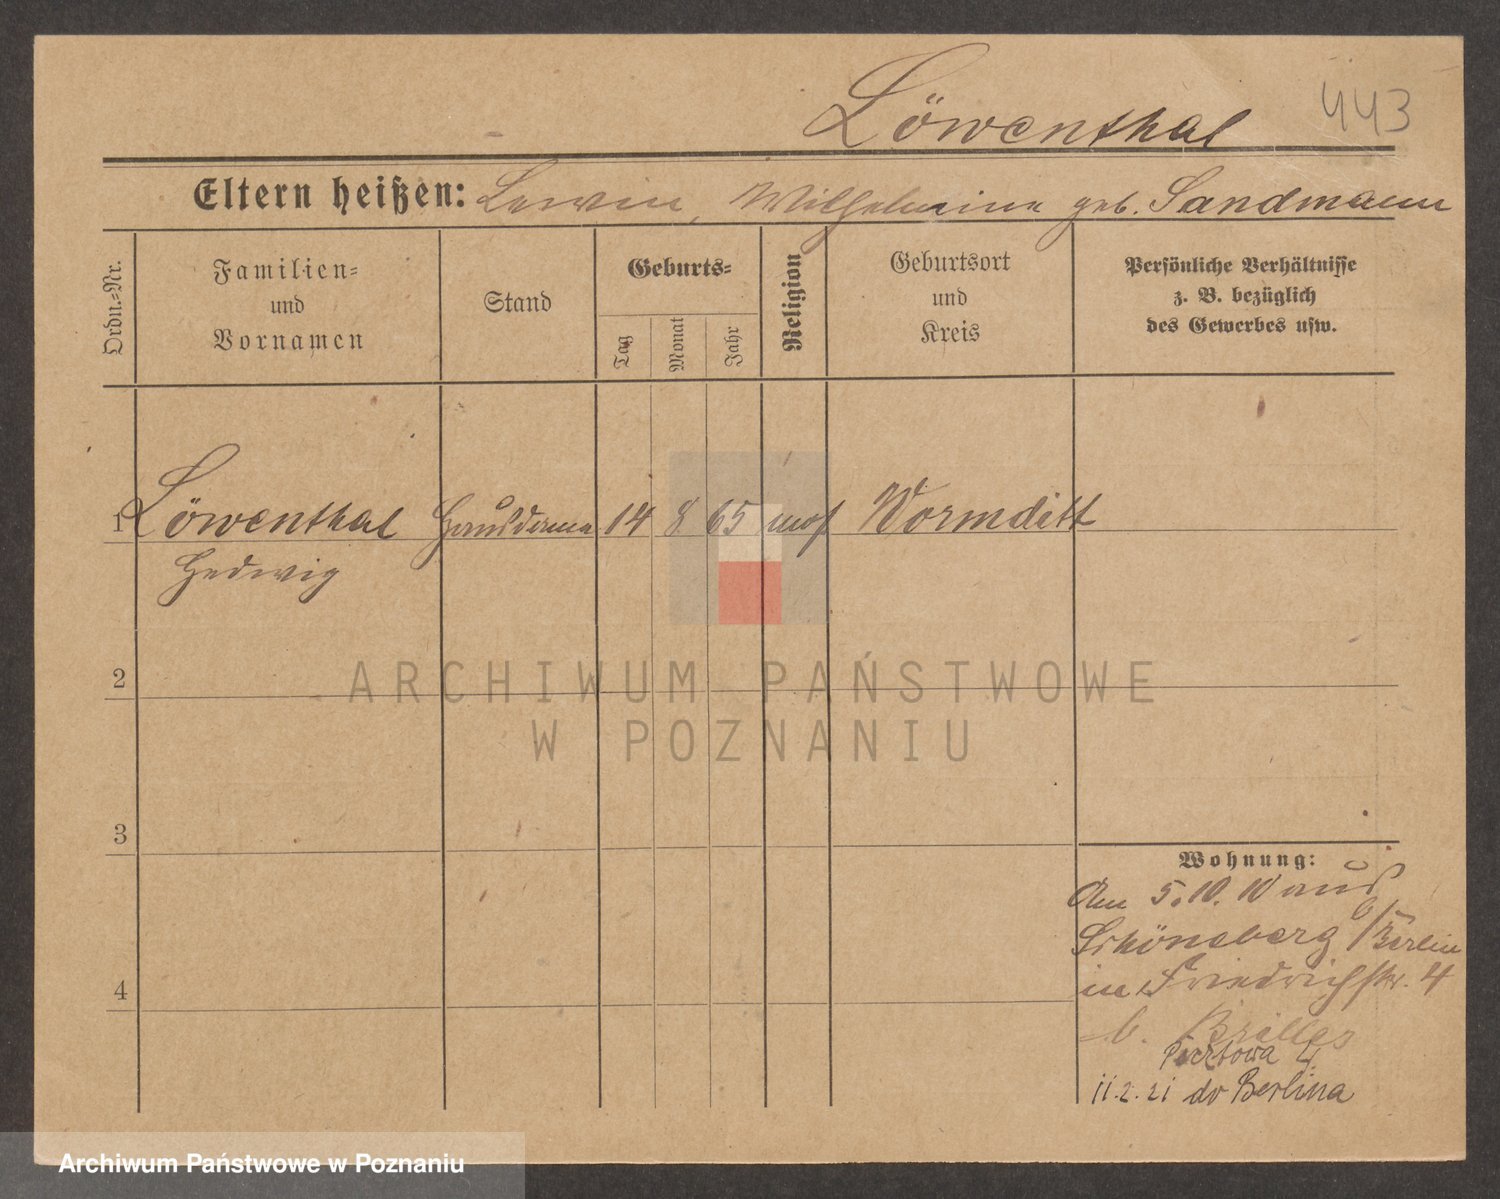 Löwenthal 443
Eltern heißen: Lewin, Wilhelmine geb. Sandmann
Ordn.-Nr.
Familien-
und
Vornamen
Stand
Geburts-
Tag
Monat
Jahr
Religion
Geburtsort
und
Kreis
Persönliche Verhältnisse
z. B. bezüglich
des Gewerbes usw.
1 Löwenthal Hausdame 14 8 65 mos Wormditt
Hedwig
2
3
4
Wohnung:
Am 5.10.10 aus
Schöneberg b/Berlin
in Friedrichstr. 4
b.
Pocztowa 4
11.2.21 do Berlina
ARCHIWUM PAŃSTWOWE
W POZNANIU
Archiwum Państwowe w Poznaniu